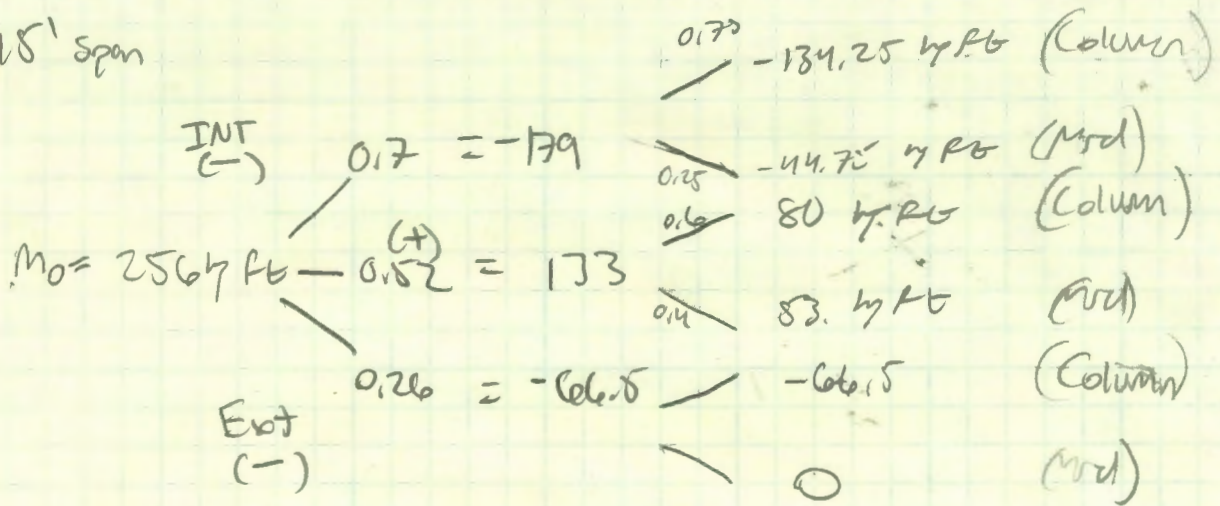 15' Span
0.75 -134.25 kip ft (Column)
INT
(-) 0.7 = -179
0.25 -44.75 kip ft (Mid)
0.6 80 kip ft (Column)
M₀ = 256 kip ft (+) 0.52 = 133
0.4 53. kip ft (Mid)
0.26 = -66.5 -66.5 (Column)
Ext
(-) 0 (Mid)